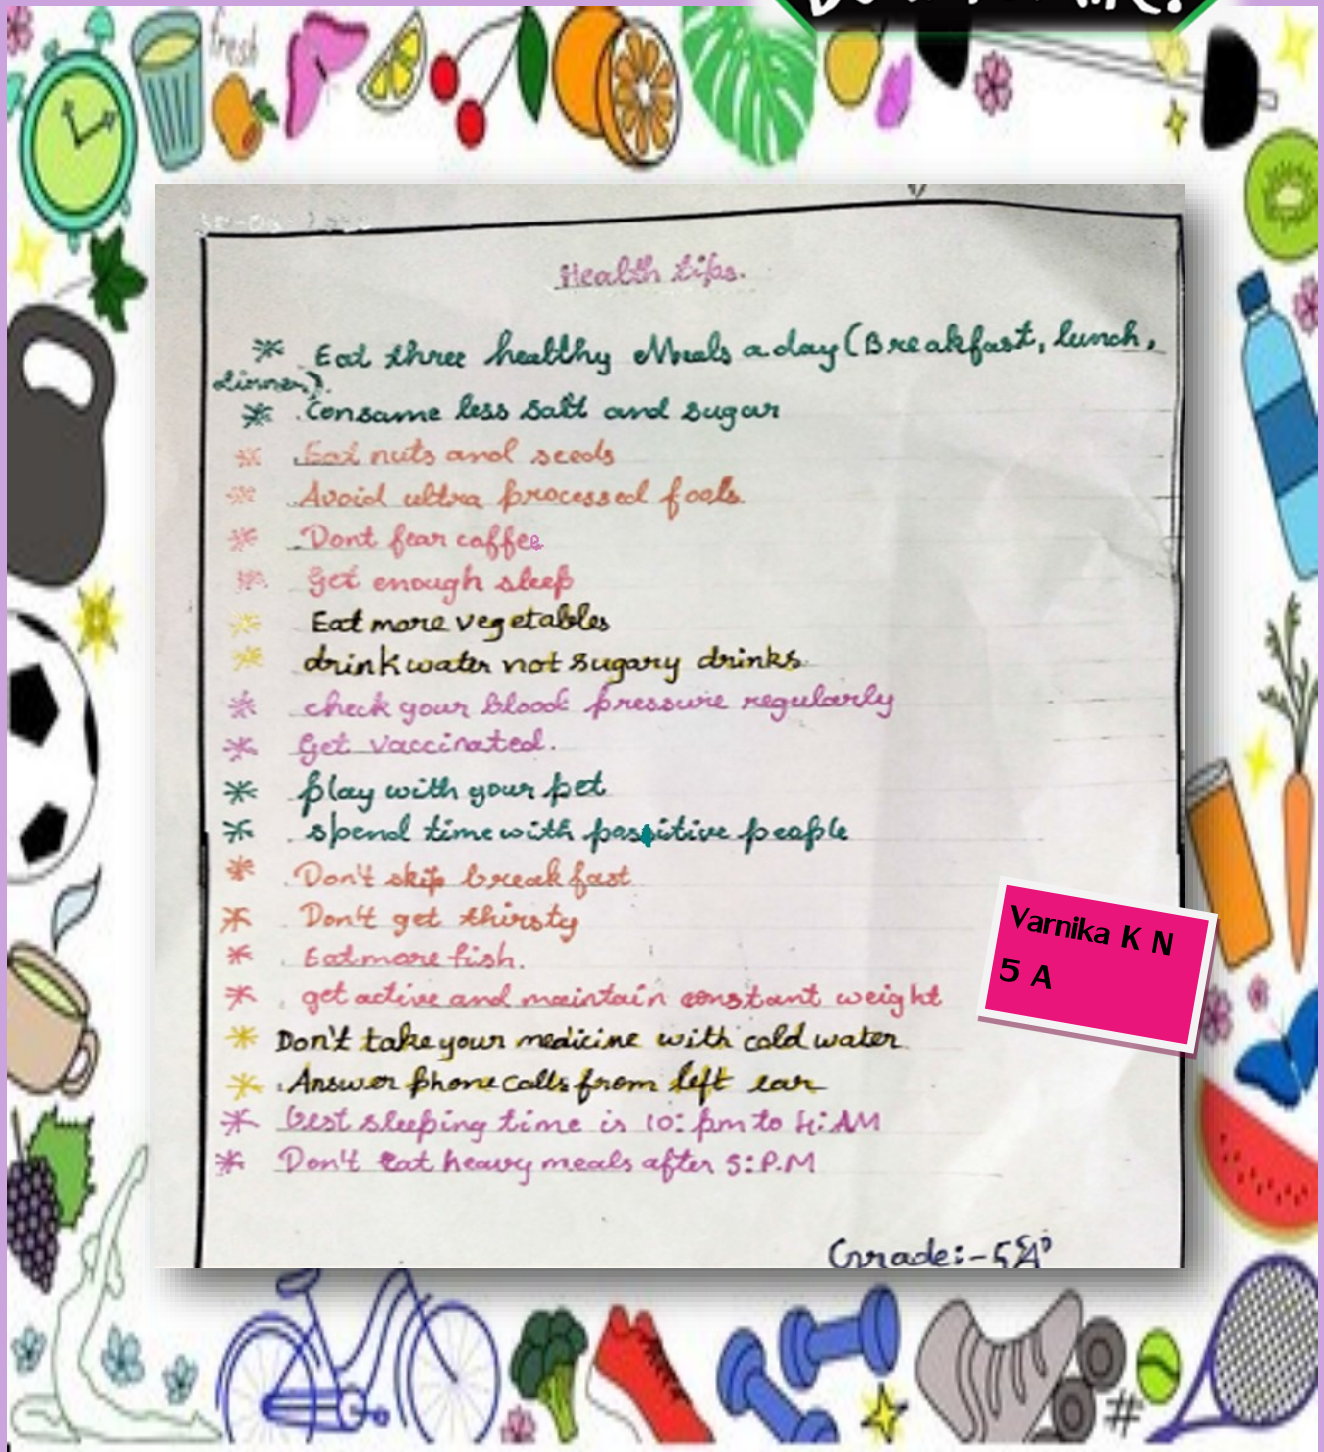 fresh
Health tips.
* Eat three healthy Meals a day (Breakfast, lunch,
dinner).
* Consame less salt and sugar
* Eat nuts and seeds
* Avoid ultra processed foods
* Dont fear coffee
* Get enough sleep
* Eat more vegetables
* drink water not sugary drinks
* check your blood pressure regularly
* Get vaccinated.
* play with your pet
* spend time with positive people
* Don't skip breakfast
* Don't get thirsty
* Eat more fish.
* get active and maintain constant weight
* Don't take your medicine with cold water
* Answer phone calls from left ear
* best sleeping time is 10: pm to 4: AM
* Don't eat heavy meals after 5: P.M
Varnika K N
5 A
Grade:- 5
#